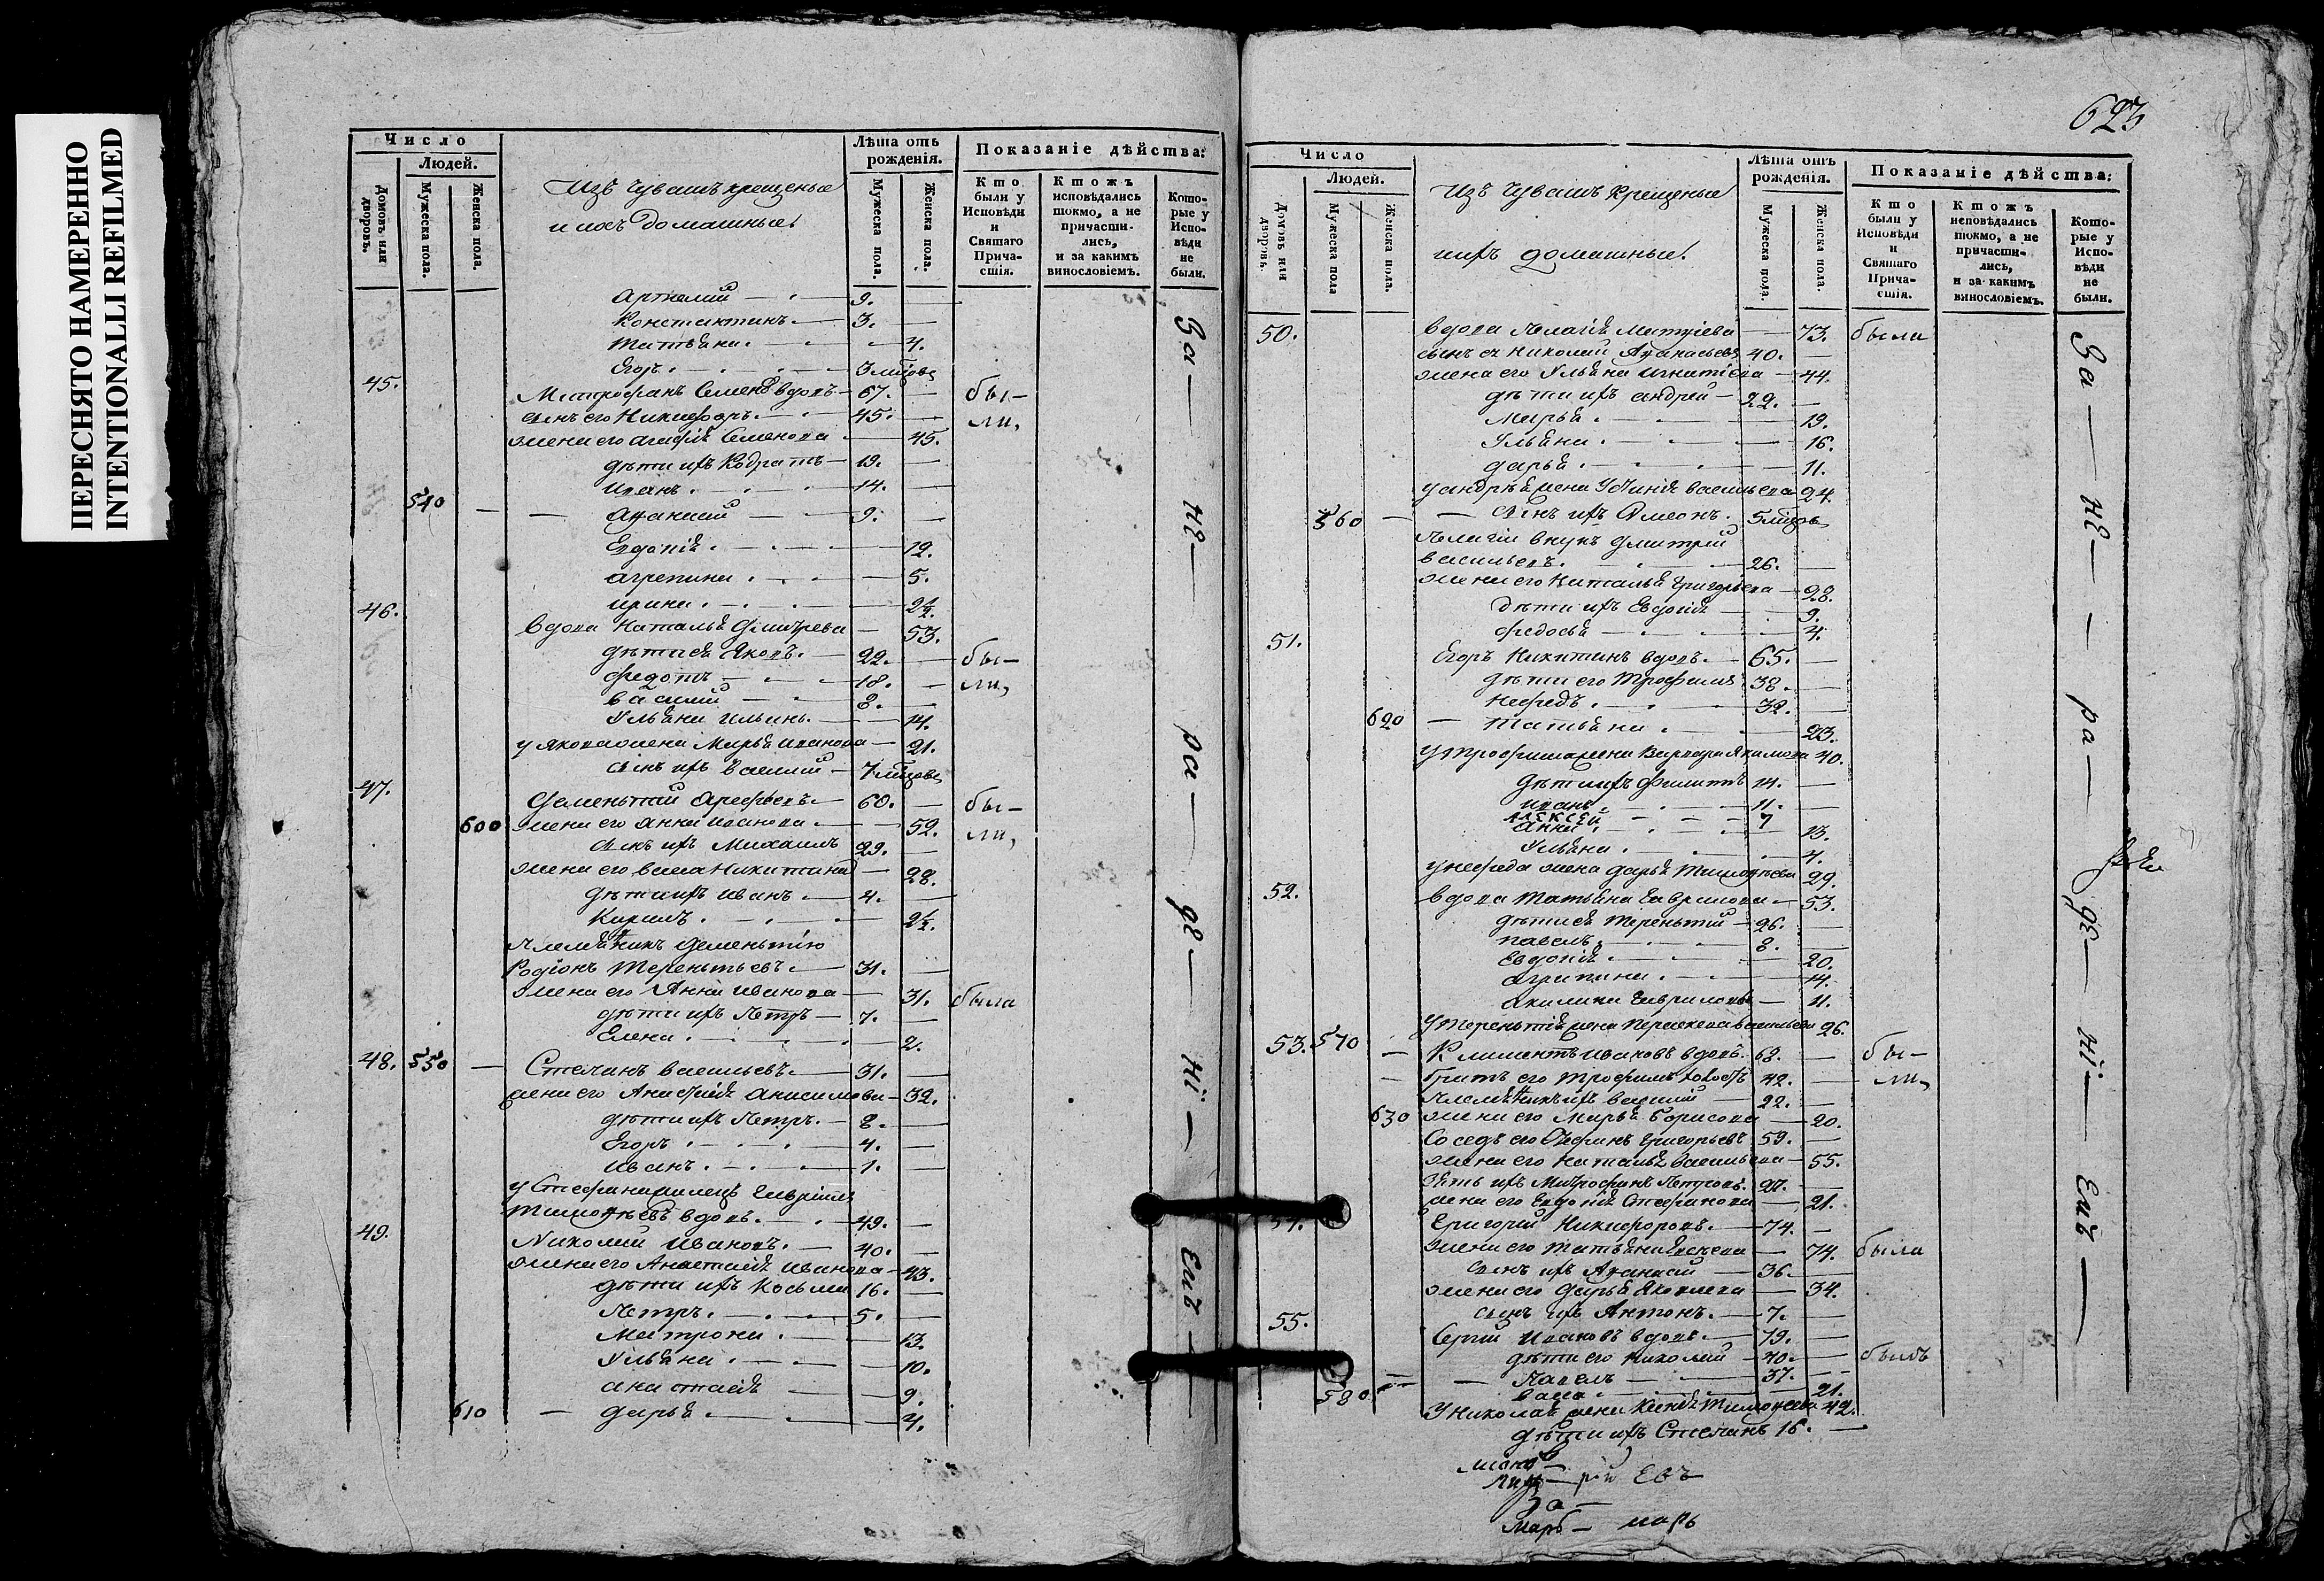 ПЕРЕСНЯТО НАМЕРЕННО
INTENTIONALLI REFILMED
Число
Людей.
Домовъ или дворовъ.
Мужеска пола.
Женска пола.
Изъ Чувашъ крещеные
и ихъ домашные
Лѣта отъ рожденія.
Мужеска пола.
Женска пола.
Показаніе дѣйства:
Кто были у Исповѣди и Святаго Причастія.
Ктожъ исповѣдались токмо, а не причастились, и за какимъ винословіемъ.
Которые у Исповѣди не были.
Артемий 9.
Константинъ 3.
Татьяна 4.
Егоръ 3
45. Митрофанъ Семеновъ вдовъ 67. бы-
сынъ его Никифоръ 45. ли,
жена его Агафія Семенова 45.
дѣти ихъ Кодратъ 19.
Иванъ 14.
540 Афанасий 9.
Евдокія 12.
Агрепина 5.
Ирина 2½.
46. Вдова Наталья Дмитрева 53.
дѣти ея Яковъ 22. бы-
Федотъ 18. ли,
Василий 8.
Ульяна 14.
у Якова жена Марья Иванова 21.
сынъ ихъ Василий 7
47. Дементий Арефьевъ 60. бы-
600 жена его Анна Иванова 52. ли,
сынъ ихъ Михаилъ 29.
жена его Васса Никитина 28.
дѣти ихъ Иванъ 4.
Кирилъ 2½.
племянникъ Дементию
Родіонъ Терентьевъ 31.
жена его Анна Иванова 31. была
дѣти ихъ Петръ 7.
Елена 2.
48. 550 Степанъ Васильевъ 31.
жена его Анисимова 32.
дѣти ихъ Петръ 8.
Егоръ 4.
Иванъ 1.
у Стефана
Тимофѣевъ вдовъ 49.
49. Николай Ивановъ 40.
жена его Анастасія Иванова 43.
дѣти ихъ Косьма 16.
Петръ 5.
Матрона 13.
Ульяна 10.
Анастасія 9.
610 Дарья 4.
За — не — ра — де — ні — емъ
623
Число
Людей.
Домовъ или дворовъ.
Мужеска пола
Женска пола.
Изъ Чувашъ крещеные
ихъ домашные.
Лѣта отъ рожденія.
Мужеска пола.
Женска пола.
Показаніе дѣйства:
Кто были у Исповѣди и Святаго Причастія.
Ктожъ исповѣдались токмо, а не причастились, и за какимъ винословіемъ.
Которые у Исповѣди не были.
50. вдова Пелагія Матфіева 73. были
сынъ ея Николай Афанасьевъ 40.
жена его Ульяна Игнатіева 44.
дѣти ихъ Андрей 22.
Марья 19.
Ульяна 16.
Дарья 11.
у Андрѣя жена Васильева 24.
560 сынъ ихъ Симеонъ 5
Пелагіи внукъ Дмитрий
Васильевъ 26.
жена его Наталья Григорьева 28.
дѣти ихъ Евдокія 9.
Федосья 4.
51. Егоръ Никитинъ вдовъ 65.
дѣти его Трофимъ 38.
Нефедъ 32.
620 Татьяна 23.
у Трофима жена Варвара Якимова 40.
дѣти ихъ Филипъ 14.
Иванъ 11.
Алексей 7
Анна 13.
Ульяна 4.
у Нефеда жена Дарья Тимофѣева 29.
52. вдова Татьяна Гаврилова 53.
дѣти ея Терентий 26.
Павелъ 8.
Евдокія 20.
Агрипина 14.
Акилина Гаврилова 11.
у Терентія жена Васильева 26.
53. 570 Климентъ Ивановъ вдовъ 68. бы-
братъ его Трофимъ холостъ 42. ли,
племянникъ ихъ Василий 22.
630 жена его Марья Борисова 20.
соседъ его Григорьевъ 59.
жена его Наталья Васильева 55.
зять ихъ Митрофанъ Петровъ 27.
жена его Евдокія Стефанова 21.
54. Григорий Никифоровъ 74.
жена его Татьяна 74. была
сынъ ихъ Афанасий 36.
жена его Дарья Яковлева 34.
сынъ ихъ Антонъ 7.
55. Сергій Ивановъ вдовъ 79.
дѣти его Николай 40. былъ
580 Павелъ 37.
Васса 21.
у Николая жена Ксенія Тимофеева 42.
дѣти ихъ Степанъ 16.
За — не — ра — де — ні — емъ
марь